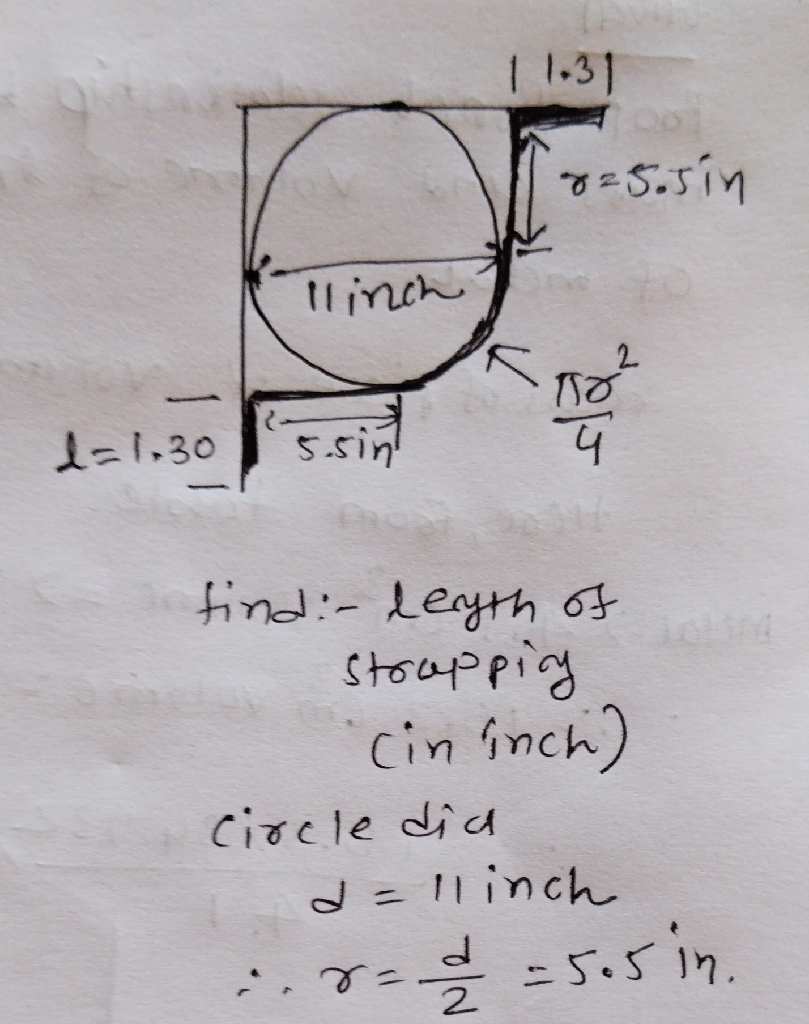 | 1.3 |
r=5.5in
11 inch
πr²/4
l=1.30
5.5in
find:- length of
strapping
(in inch)
circle dia
d = 11 inch
∴ r = d/2 = 5.5 in.